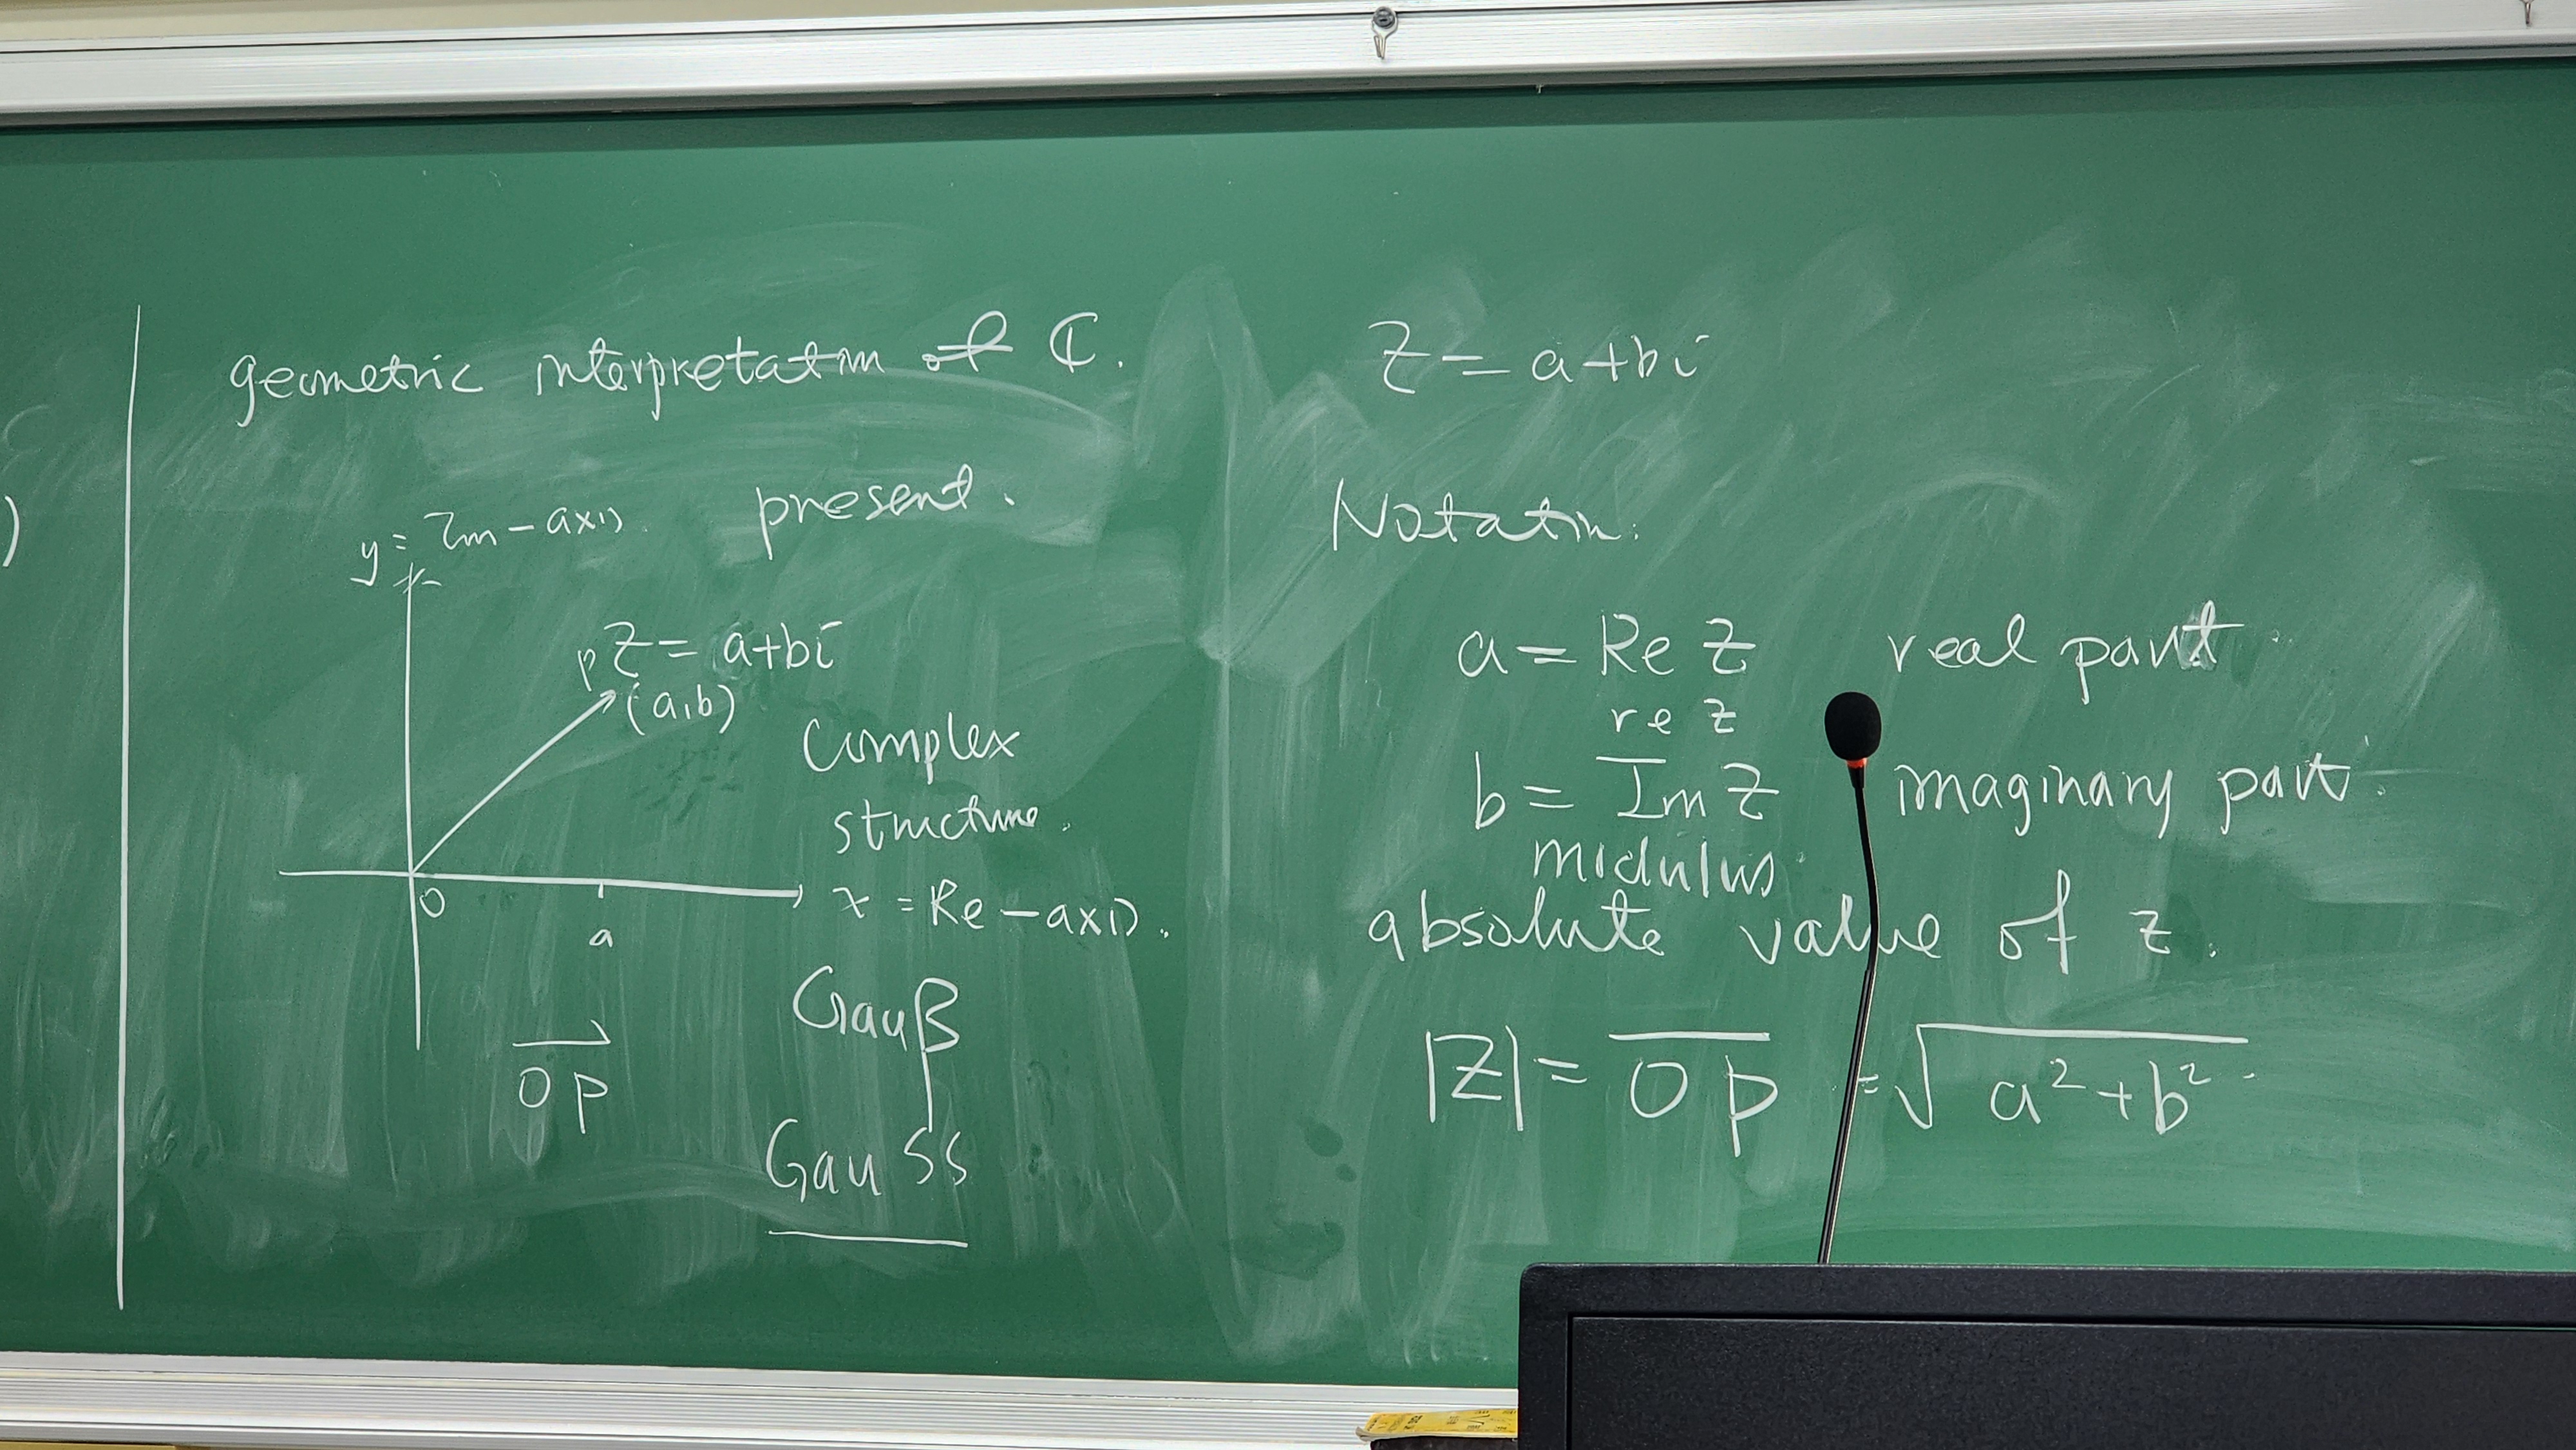 )
geometric interpretation of ℂ.
present.
y = Im-axis.
P z = a+bi
(a,b)
Complex
structure.
0
a
x = Re-axis.
→
OP
Gauβ
Gauss
z = a+bi
Notation:
a = Re z real part.
re z
b = Im z imaginary part.
modulus.
absolute value of z.
|z| = O̅P̅ = √(a²+b²).